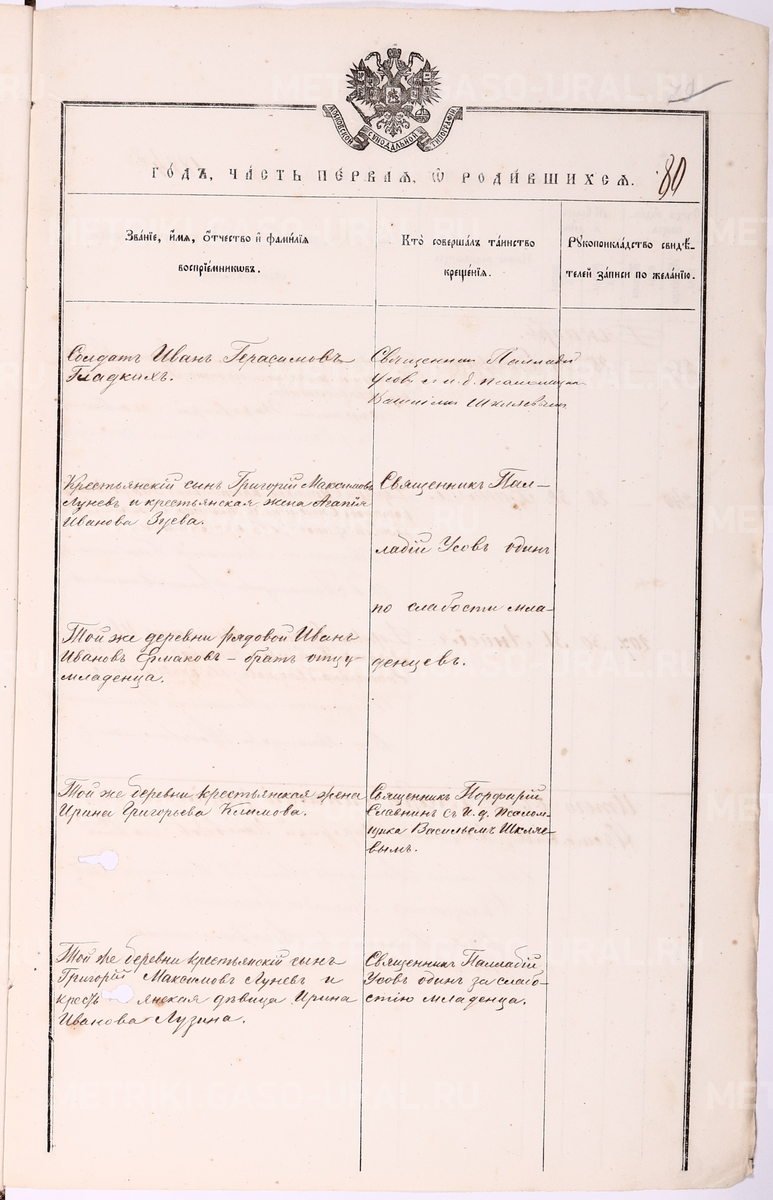 МОСКОВСКОЙ СѴНОДАЛЬНОЙ ТИПОГРАФІИ
ГОДЪ, ЧАСТЬ ПЕРВАЯ, Ѡ РОДИВШИХСЯ.
80
Званїе, имя, отчество и фамилїя
воспрїемникωвъ.
Кто совершалъ таинство
крещенїя.
Рукоприкладство свидѣ-
телей записи по желанїю.
Солдатъ Иванъ Герасимовъ
Гладкихъ.
Священник Палладій
Усовъ и. д. псаломщика
Василій
Крестьянскій сынъ Григорій Максимовъ
Луневъ и крестьянская жена Агапія
Иванова Зуева.
Священникъ Пал-
ладій Усовъ одинъ
по слабости мла-
денцевъ.
Той же деревни рядовой Иванъ
Ивановъ Ермаковъ – братъ отцу
младенца.
Той же деревни крестьянская жена
Ирина Григорьева Климова.
Священникъ Порфирій
Славнинъ съ и. д. псалом-
щика Васильемъ Шкляе-
вымъ.
Той же деревни крестьянскій сынъ
Григорій Максимовъ Луневъ и
кресть янская дѣвица Ирина
Иванова Лузина.
Священникъ Палладій
Усовъ одинъ за слабо-
стію младенца.
METRIKI.GASO-URAL.RU